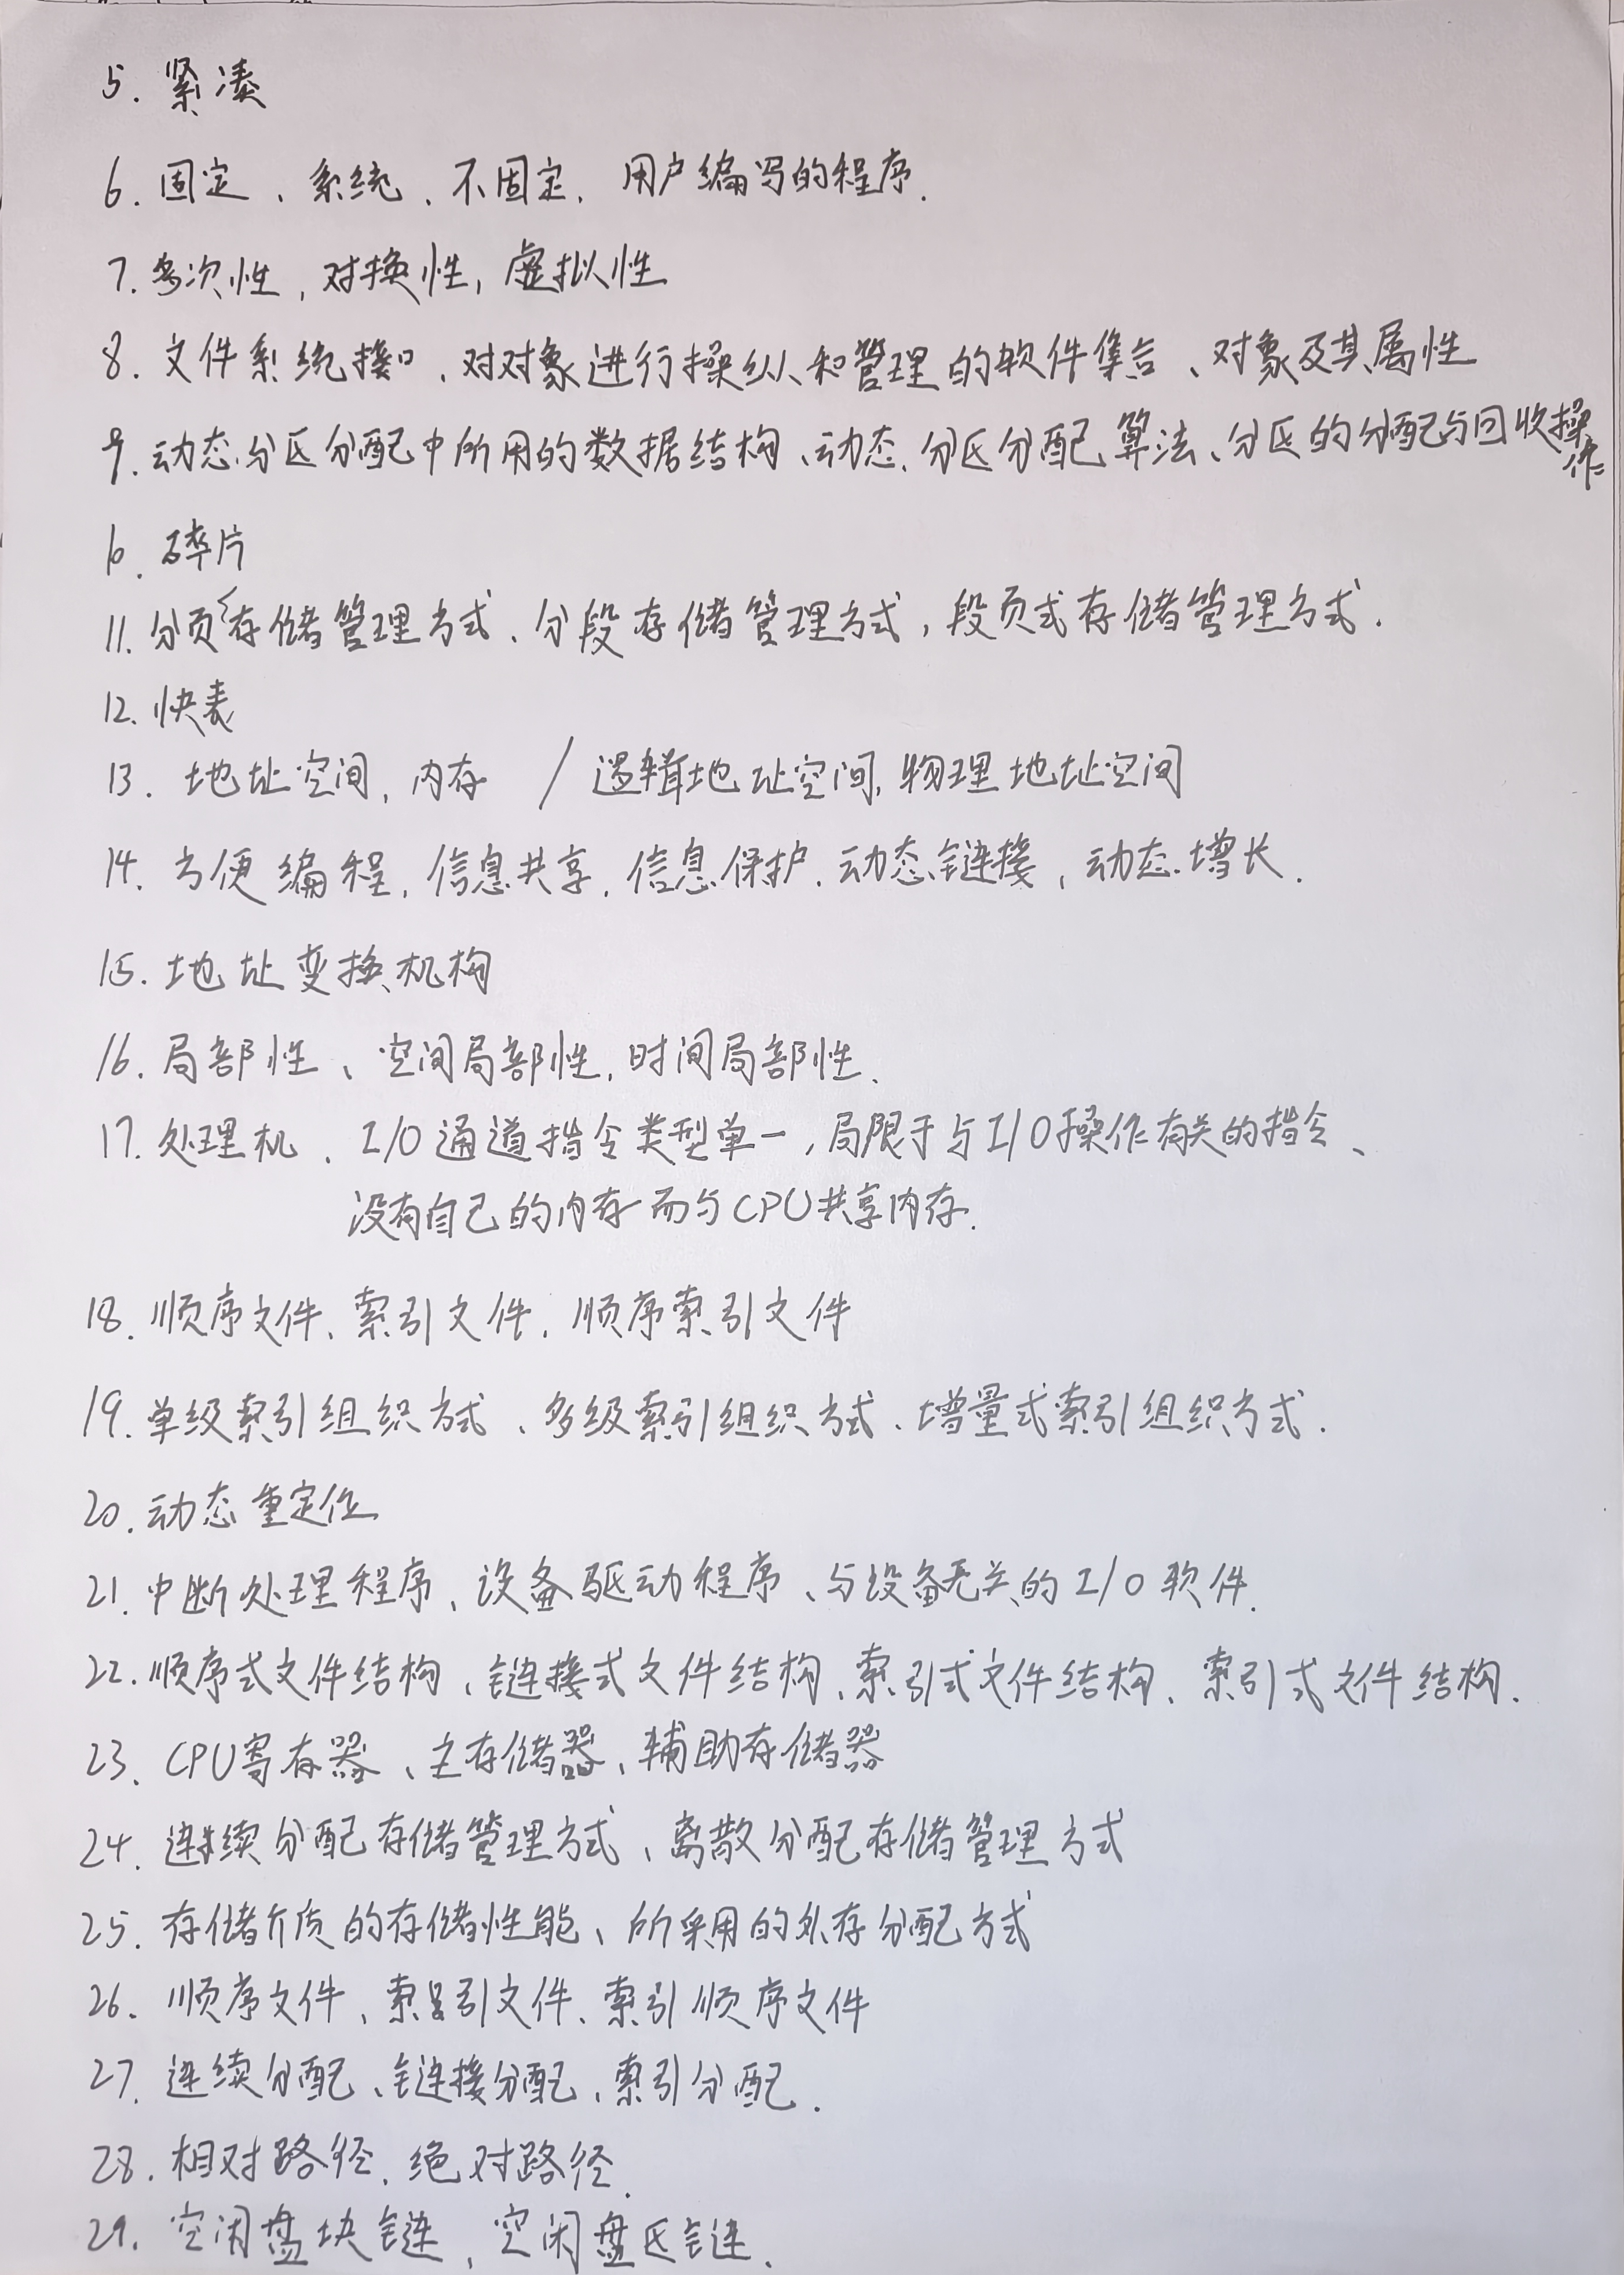 5. 紧凑
6. 固定、系统、不固定、用户编写的程序.
7. 多次性, 对换性, 虚拟性
8. 文件系统接口、对对象进行操纵和管理的软件集合、对象及其属性
9. 动态分区分配中所用的数据结构、动态分区分配算法、分区的分配与回收操作
10. 碎片
11. 分页存储管理方式、分段存储管理方式, 段页式存储管理方式.
12. 快表
13. 地址空间, 内存 / 逻辑地址空间, 物理地址空间
14. 方便编程, 信息共享, 信息保护, 动态链接, 动态增长.
15. 地址变换机构
16. 局部性、空间局部性, 时间局部性.
17. 处理机、I/O通道指令类型单一, 局限于与I/O操作有关的指令、
没有自己的内存而与CPU共享内存.
18. 顺序文件、索引文件、顺序索引文件
19. 单级索引组织方式、多级索引组织方式、增量式索引组织方式.
20. 动态重定位
21. 中断处理程序、设备驱动程序、与设备无关的I/O软件.
22. 顺序式文件结构、链接式文件结构、索引式文件结构、索引式文件结构.
23. CPU寄存器、主存储器、辅助存储器
24. 连续分配存储管理方式、离散分配存储管理方式
25. 存储介质的存储性能、所采用的外存分配方式
26. 顺序文件、索引文件、索引顺序文件
27. 连续分配、链接分配、索引分配.
28. 相对路径、绝对路径.
29. 空闲盘块链, 空闲盘区链.